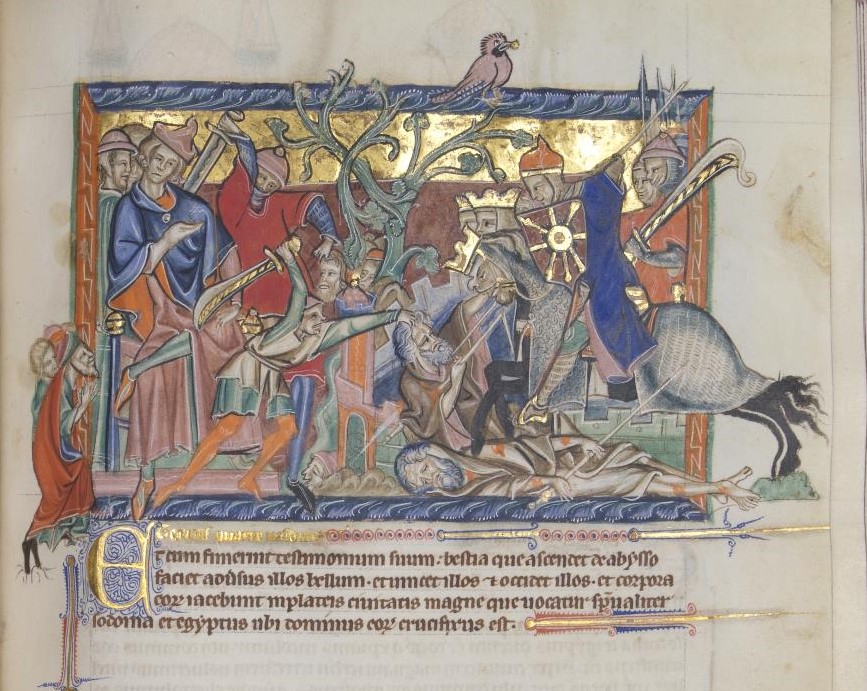 Et cum finierint testimonium suum: bestia que ascendet de abysso
faciet adu̓sus illos bellum · et uincet illos ⁊ occidet illos · et corpora
eoꝝ iacebunt in plateis ciuitatis magne que uocatur sp̄ualiter
sodoma et egyptus ubi dominus eoꝝ crucifixus est ·